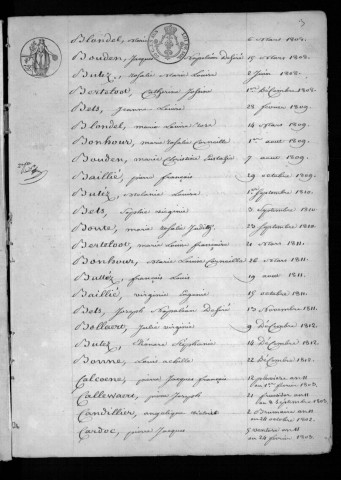 Blondel, marie 6 Mars 1808.
Bouden, Jacques Napoléon Désiré 15 Mars 1808.
Butez, rosalie Marie Louise 2 Juin 1808.
Berteloot, Catherine Josine 1er Décembre 1808.
Bets, Jeanne Louise 28 février 1809.
Blondel, marie Louise rose 14 Mars 1809.
Bonhour, marie rosalie Cornuille 1er aout 1809.
Bouden, marie Christine 7 aout 1809.
Baillié, pierre françois 29 octobre 1809.
Butez, mélanie Louise 1er Septembre 1810.
Bets, Sophie virginie 3 Septembre 1810.
Bourre, marie rosalie Judith 23 Septembre 1810.
Berteloot, marie Louise françoise 4 Mars 1811.
Bonhour, marie Louise Cornuille 16 Mars 1811.
Buttez, françois Louis 19 aout 1811.
Baillié, virginie Eugenie 15 octobre 1811.
Bets, Joseph Napoléon Désiré 1er Novembre 1811.
Bollaert, Julie virginie 9 Décembre 1812.
Butez, Stéphanie 14 Décembre 1812.
Bonne, Louis achille 22 Décembre 1812.
Calcoene, pierre Jacques françois 12 pluviose an 11
au 1er février 1803.
Callewaert, pierre Joseph 21 fructidor an 11
au 8 Septembre 1803.
Candillier, angelique 2 Brumaire an 11
au 24 octobre 1802.
Cardoc, pierre Jacques 5 ventose an 11
au 24 février 1803.